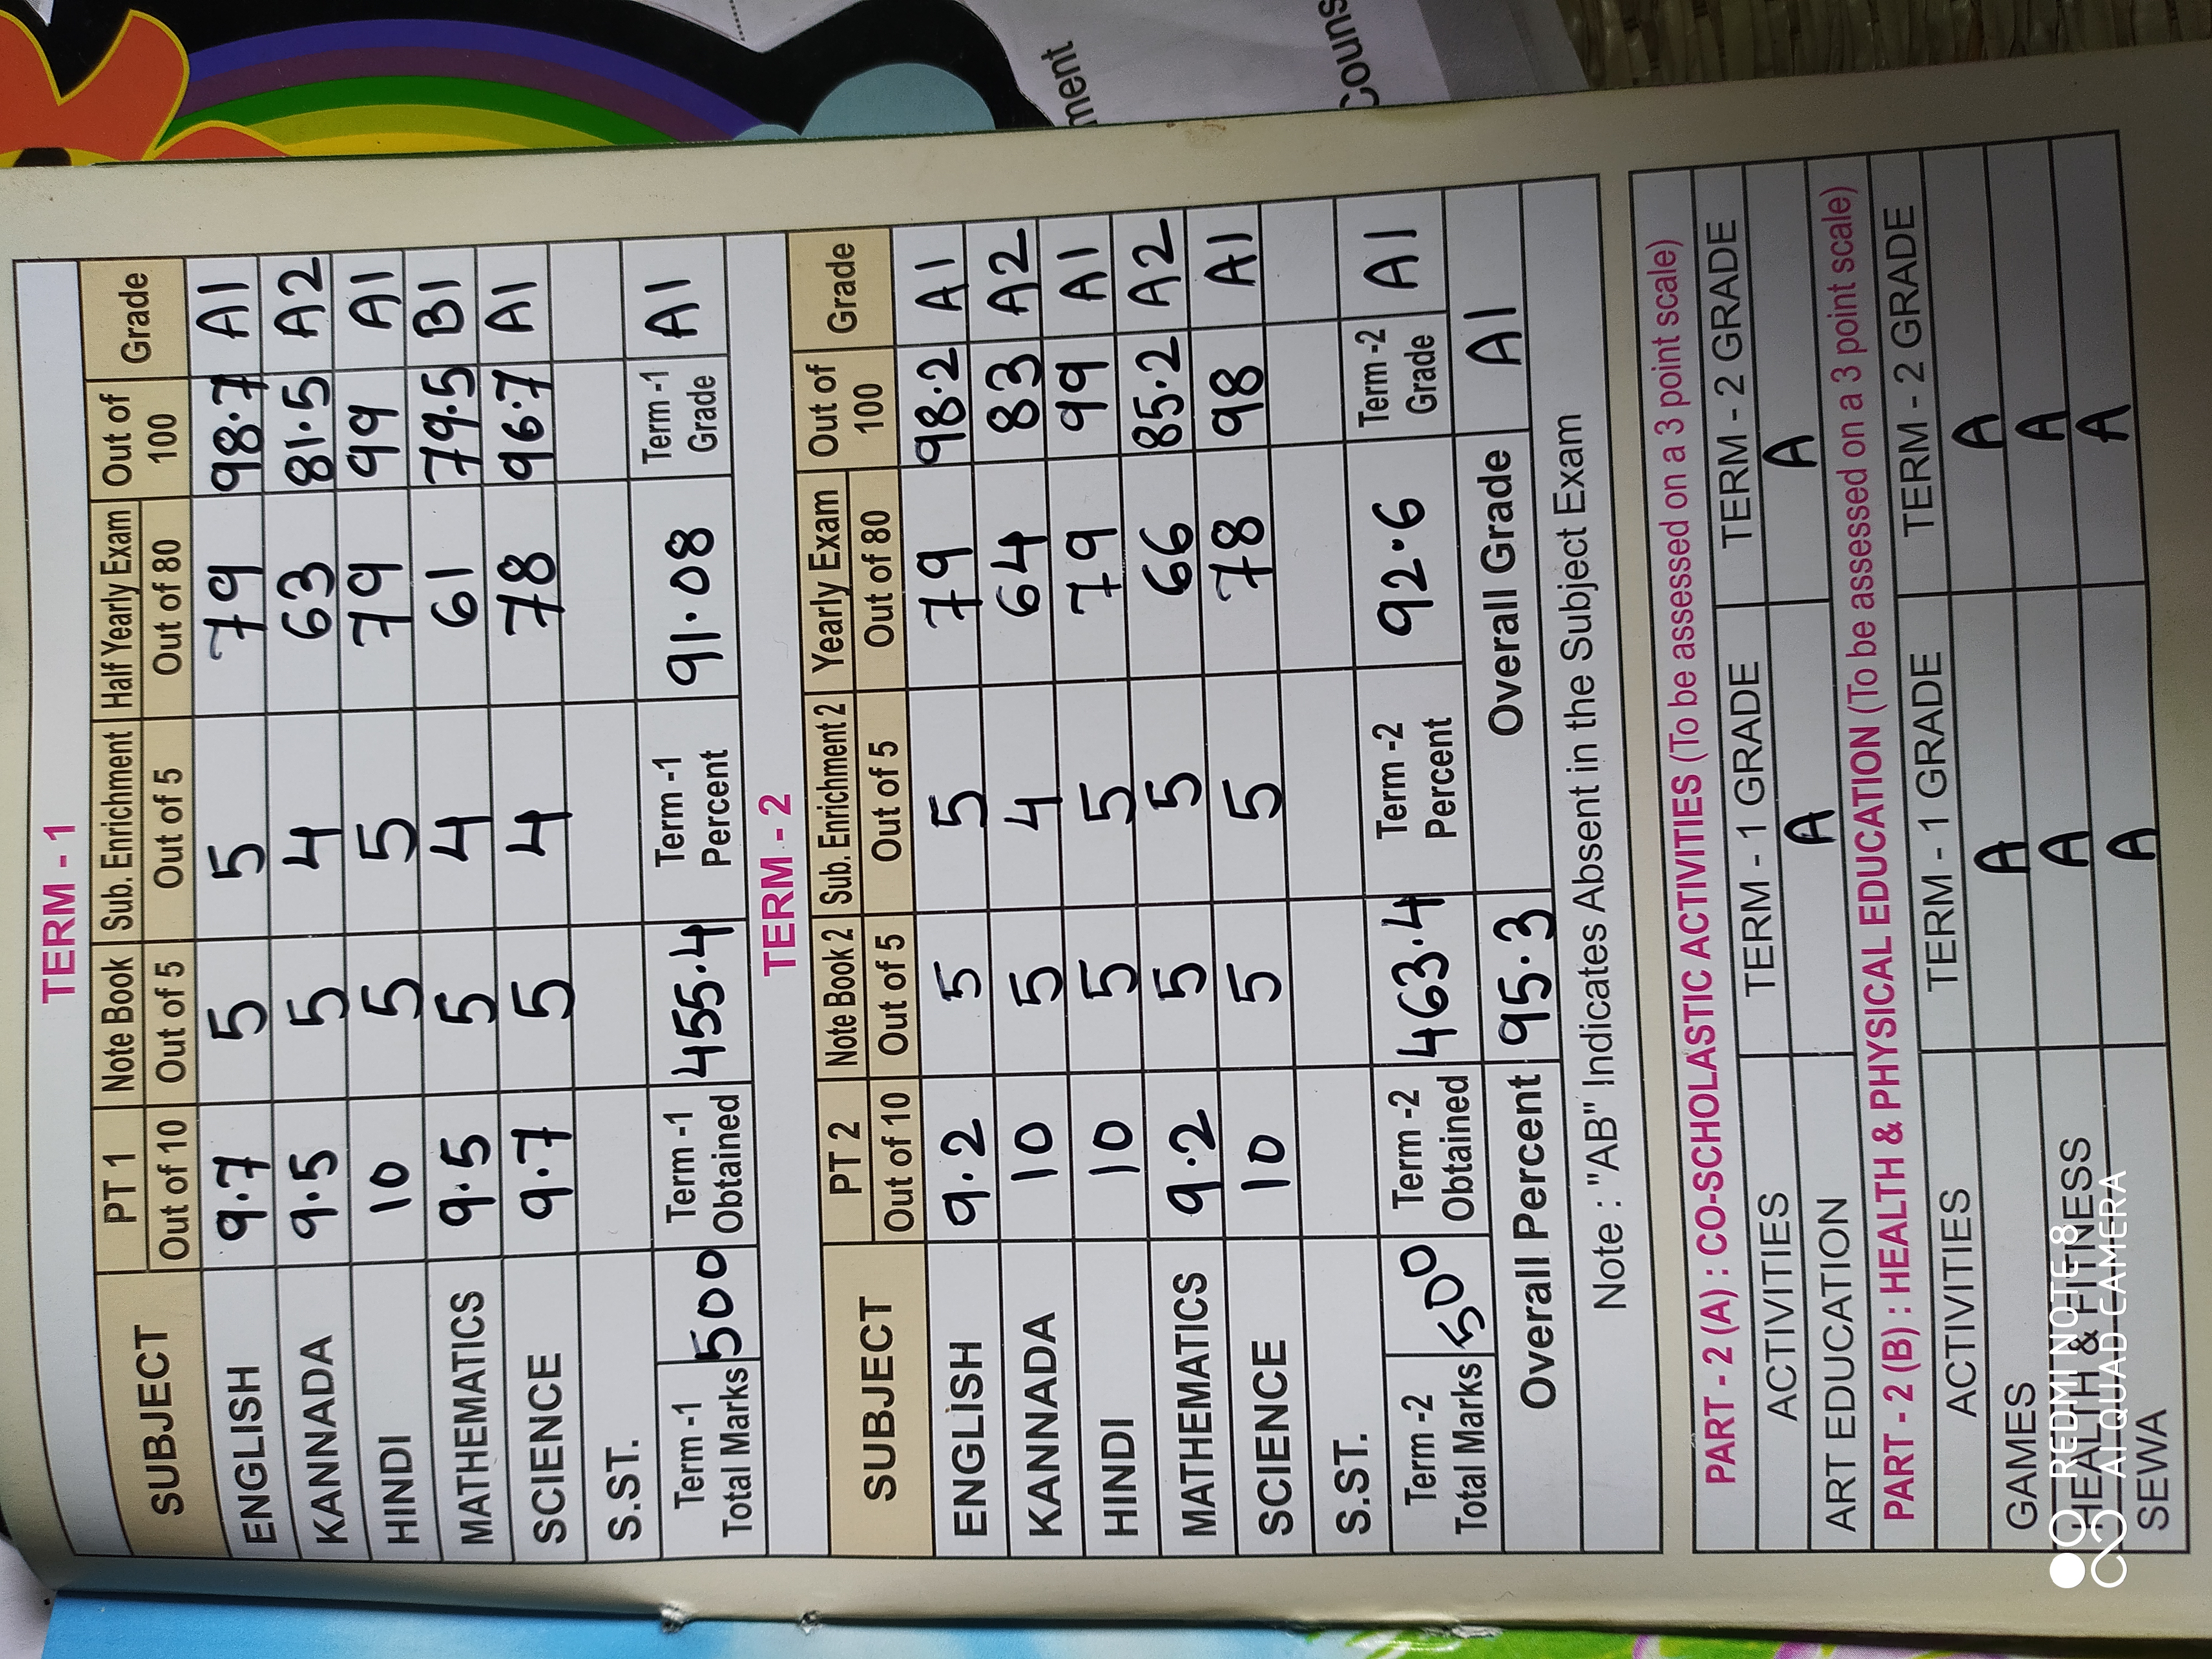 TERM - 1
SUBJECT PT 1 Note Book Sub. Enrichment Half Yearly Exam Out of 100 Grade
Out of 10 Out of 5 Out of 5 Out of 80
ENGLISH 9.7 5 5 79 98.7 A1
KANNADA 9.5 5 4 63 81.5 A2
HINDI 10 5 5 79 99 A1
MATHEMATICS 9.5 5 4 61 79.5 B1
SCIENCE 9.7 5 4 78 96.7 A1
S.ST.
Term -1 Total Marks 500 Term -1 Obtained 455.4 Term -1 Percent 91.08 Term -1 Grade A1
TERM - 2
SUBJECT PT 2 Note Book 2 Sub. Enrichment 2 Yearly Exam Out of 100 Grade
Out of 10 Out of 5 Out of 5 Out of 80
ENGLISH 9.2 5 5 79 98.2 A1
KANNADA 10 5 4 64 83 A2
HINDI 10 5 5 79 99 A1
MATHEMATICS 9.2 5 5 66 85.2 A2
SCIENCE 10 5 5 78 98 A1
S.ST.
Term -2 Total Marks 500 Term -2 Obtained 463.4 Term -2 Percent 92.6 Term -2 Grade A1
Overall Percent 95.3 Overall Grade A1
Note : "AB" Indicates Absent in the Subject Exam
PART - 2 (A) : CO-SCHOLASTIC ACTIVITIES (To be assessed on a 3 point scale)
ACTIVITIES TERM - 1 GRADE TERM - 2 GRADE
ART EDUCATION A A
PART - 2 (B) : HEALTH & PHYSICAL EDUCATION (To be assessed on a 3 point scale)
ACTIVITIES TERM - 1 GRADE TERM - 2 GRADE
GAMES A A
HEALTH & FITNESS A A
SEWA A A
REDMI NOTE 8
AI QUAD CAMERA